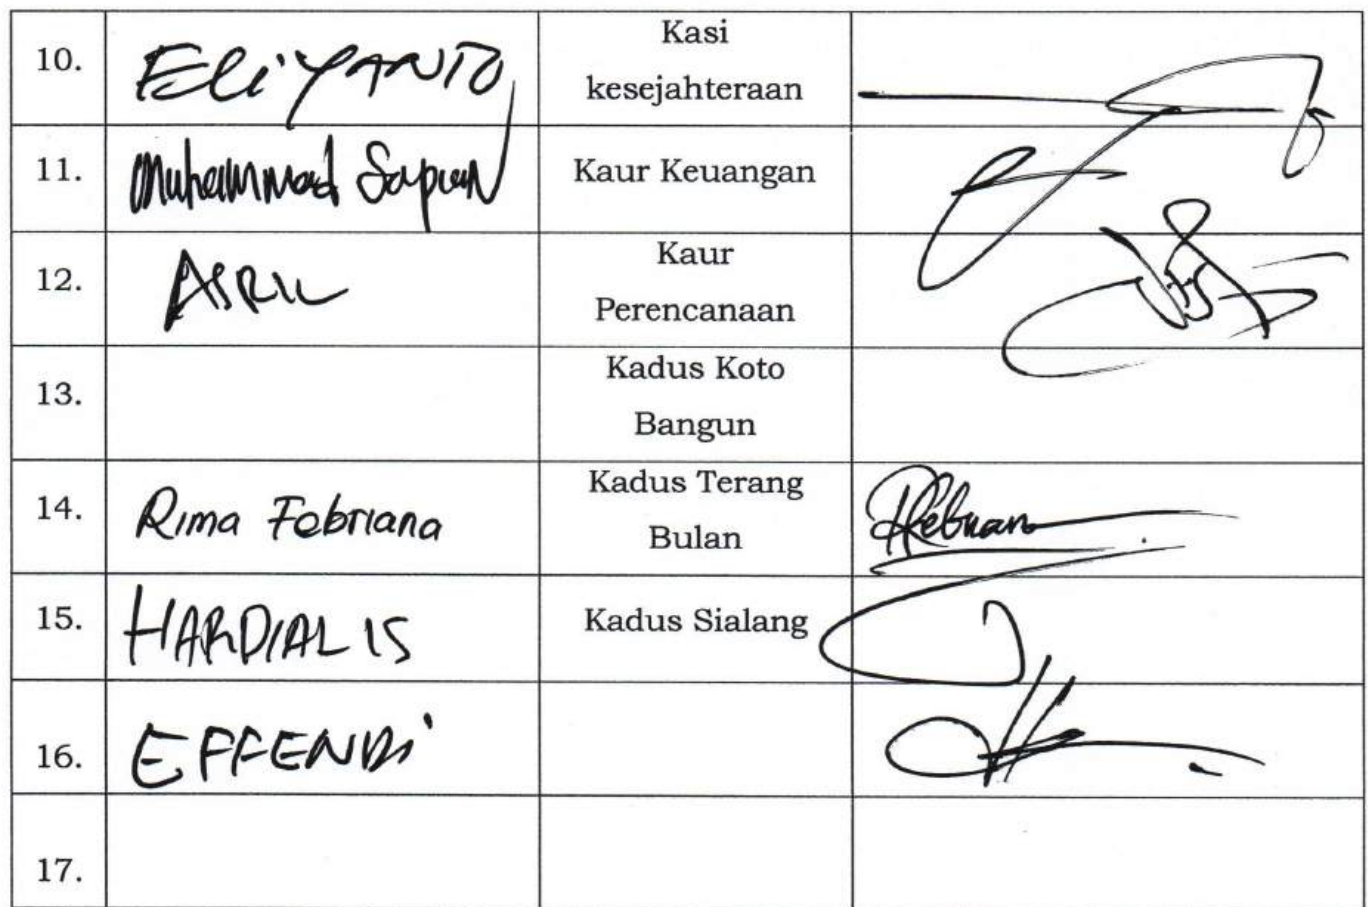 10. ELIYANTO Kasi kesejahteraan
11. Muhammad Sapuan Kaur Keuangan
12. ASRIL Kaur Perencanaan
13. Kadus Koto Bangun
14. Rima Febriana Kadus Terang Bulan
15. HARDIALIS Kadus Sialang
16. EFFENDI
17.